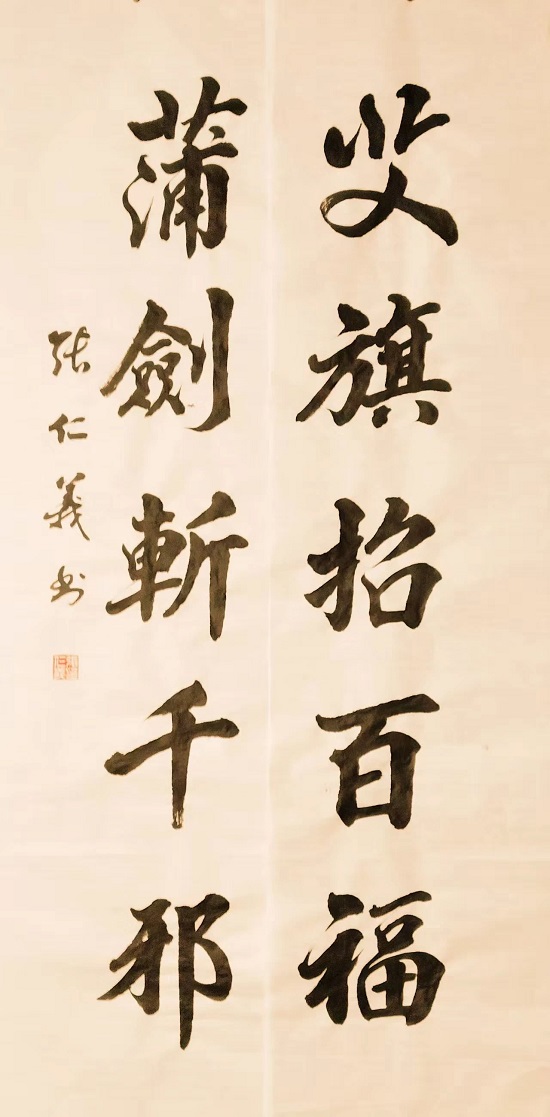 艾旗招百福
蒲劍斬千邪
张仁義书